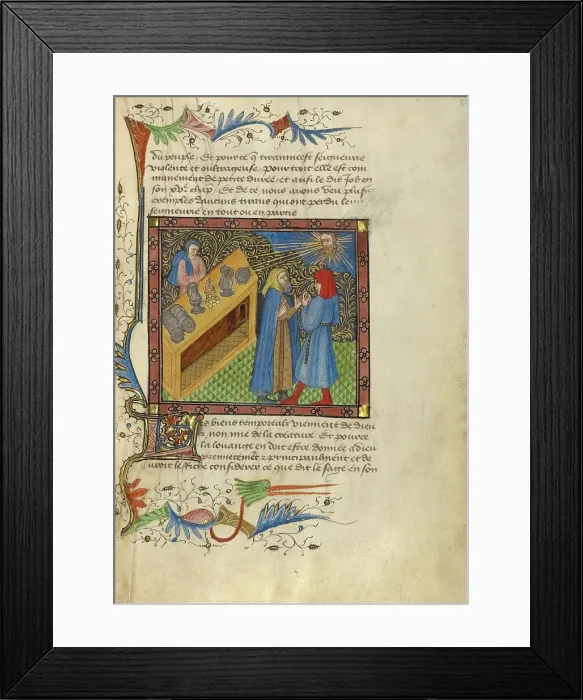 du peuple / Et pource q̄ tirannie est seigneurie
violente et oultrageuse / pourtant elle est com
munement de petite duree / et ainsi le dit Job en
son chap / Et de ce nous auons veu plus
exemples daucuns tirans qui ont perdu leur
seigneurie en tout ou en partie
es biens temporeulx viennent de dieu
non mie de la creature Et pource
la louange en doit estre donnee a dieu
premierement z principaulment et de
uroit le riche considerer ce que dit le sage en son